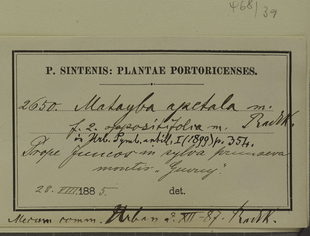 468/39
P. SINTENIS: PLANTAE PORTORICENSES.
2650. Matayba apetala m. Radlk.
f. 2. oppositifolia m.
in Urb. Symb. antill. I (1899) p. 354.
Prope Juncos in sylva primaeva
montis
28. VIII. 1885. det.
Mecum comm. Urban d. XII-87. Radlk